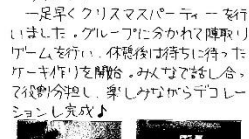 一足早くクリスマスパーティーを行
いました。グループに分かれて陣取り
ゲームを行い、休憩後は待ちに待った
ケーキ作りを開始。みんなで話し合っ
て役割分担し、楽しみながらデコレー
ション完成♪